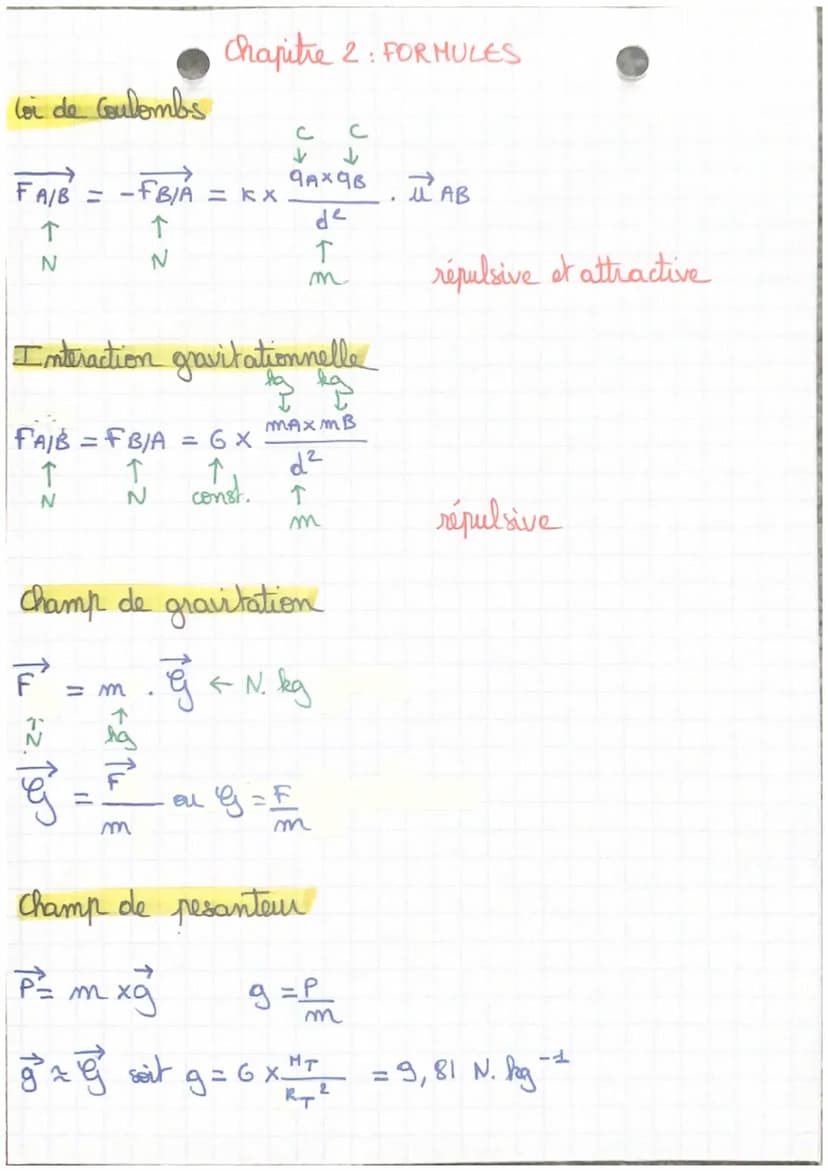 Chapitre 2 : FORMULES
Loi de Coulombs
C C
↓ ↓
F⃗ A/B = - F⃗ B/A = K × (qA × qB) / d² . u⃗ AB
↑ ↑ ↑
N N m
répulsive et attractive
Interaction gravitationnelle
kg kg
↓ ↓
FA/B = FB/A = G × (mA × mB) / d²
↑ ↑ ↑ ↑
N N const. m
répulsive
Champ de gravitation
F⃗ = m . 𝒢⃗ ← N. kg
↑ ↑
N kg
𝒢⃗ = F⃗ / m ou 𝒢 = F / m
Champ de pesanteur
P⃗ = m × g⃗ g = P / m
g⃗ ≈ 𝒢⃗ soit g = G × MT / RT² = 9,81 N. kg⁻¹